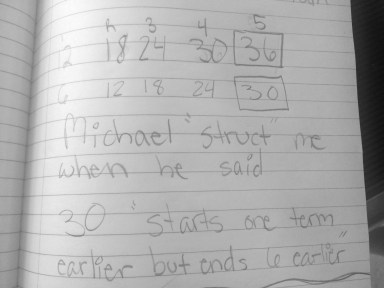 3 4 5
12 18 24 30 36
6 12 18 24 30
Michael "struct" me
when he said
30 "starts one term
earlier but ends 6 earlier"